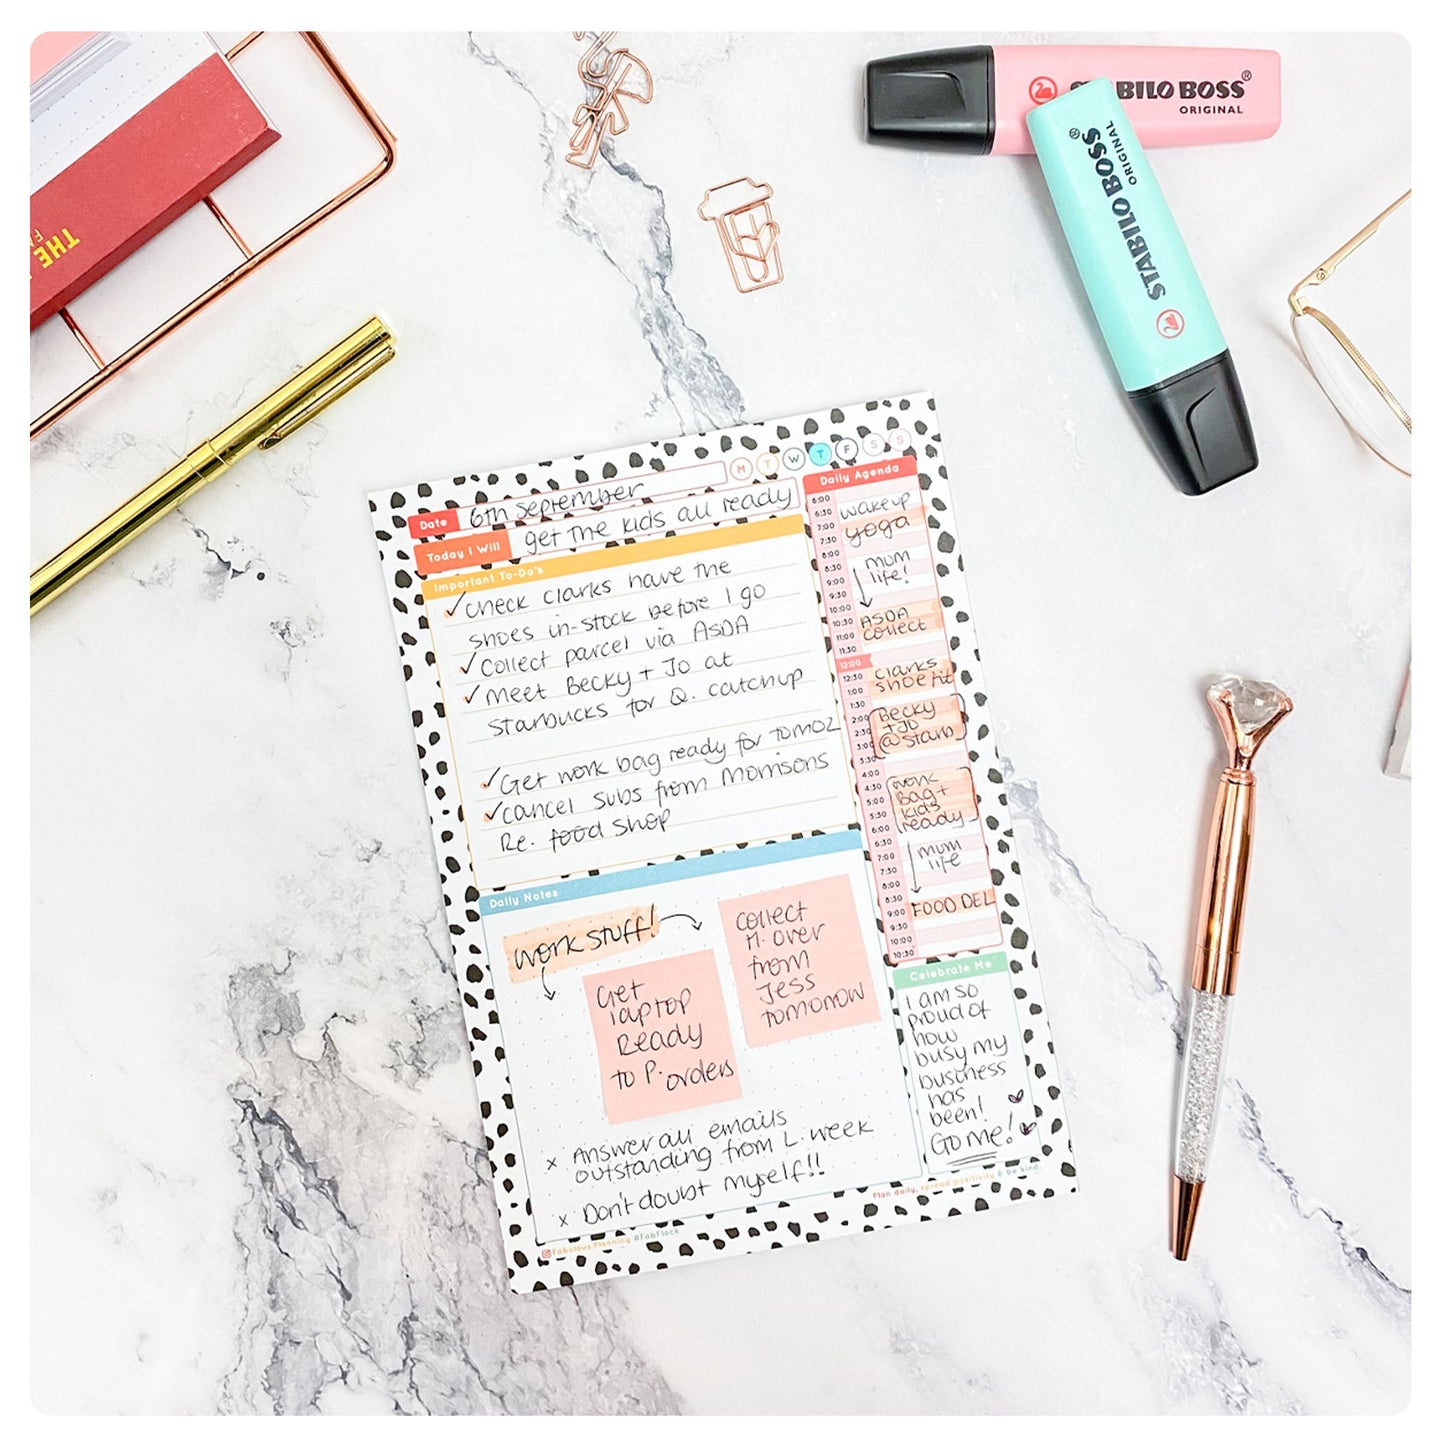 STABILO BOSS®
ORIGINAL
STABILO BOSS®
ORIGINAL
THE
M T W T F S S
Date 6th September
Today I Will get the kids all ready
Important To-Do's
✓ Check clarks have the
shoes in-stock before I go
✓ Collect parcel via ASDA
✓ Meet Becky + Jo at
Starbucks for Q. catchup
✓ Get work bag ready for tomoz
✓ cancel subs from Morrisons
Re. food shop
Daily Notes
work stuff!
Get
laptop
Ready
to P. orders
Collect
H. over
from
Jess
tomorrow
x Answer all emails
outstanding from L. week
x Don't doubt myself!!
Fabulous.Planning #FabFlock
Daily Agenda
6:00
6:30 wakeup
7:00 yoga
7:30
8:00 mum
8:30 life!
9:00
9:30
10:00
10:30 ASDA
11:00 collect
11:30
12:00
12:30 clarks
1:00 shoe fit
1:30
2:00 Becky
2:30 + Jo
3:00 @ Starb
3:30
4:00
4:30 work
5:00 Bag +
5:30 kids
6:00 ready
6:30
7:00 mum
7:30 life
8:00
8:30
9:00 FOOD DEL
9:30
10:00
10:30
Celebrate Me
I am so
proud of
how
busy my
business
has
been!
Go me!
Plan daily, spread positivity & be kind.